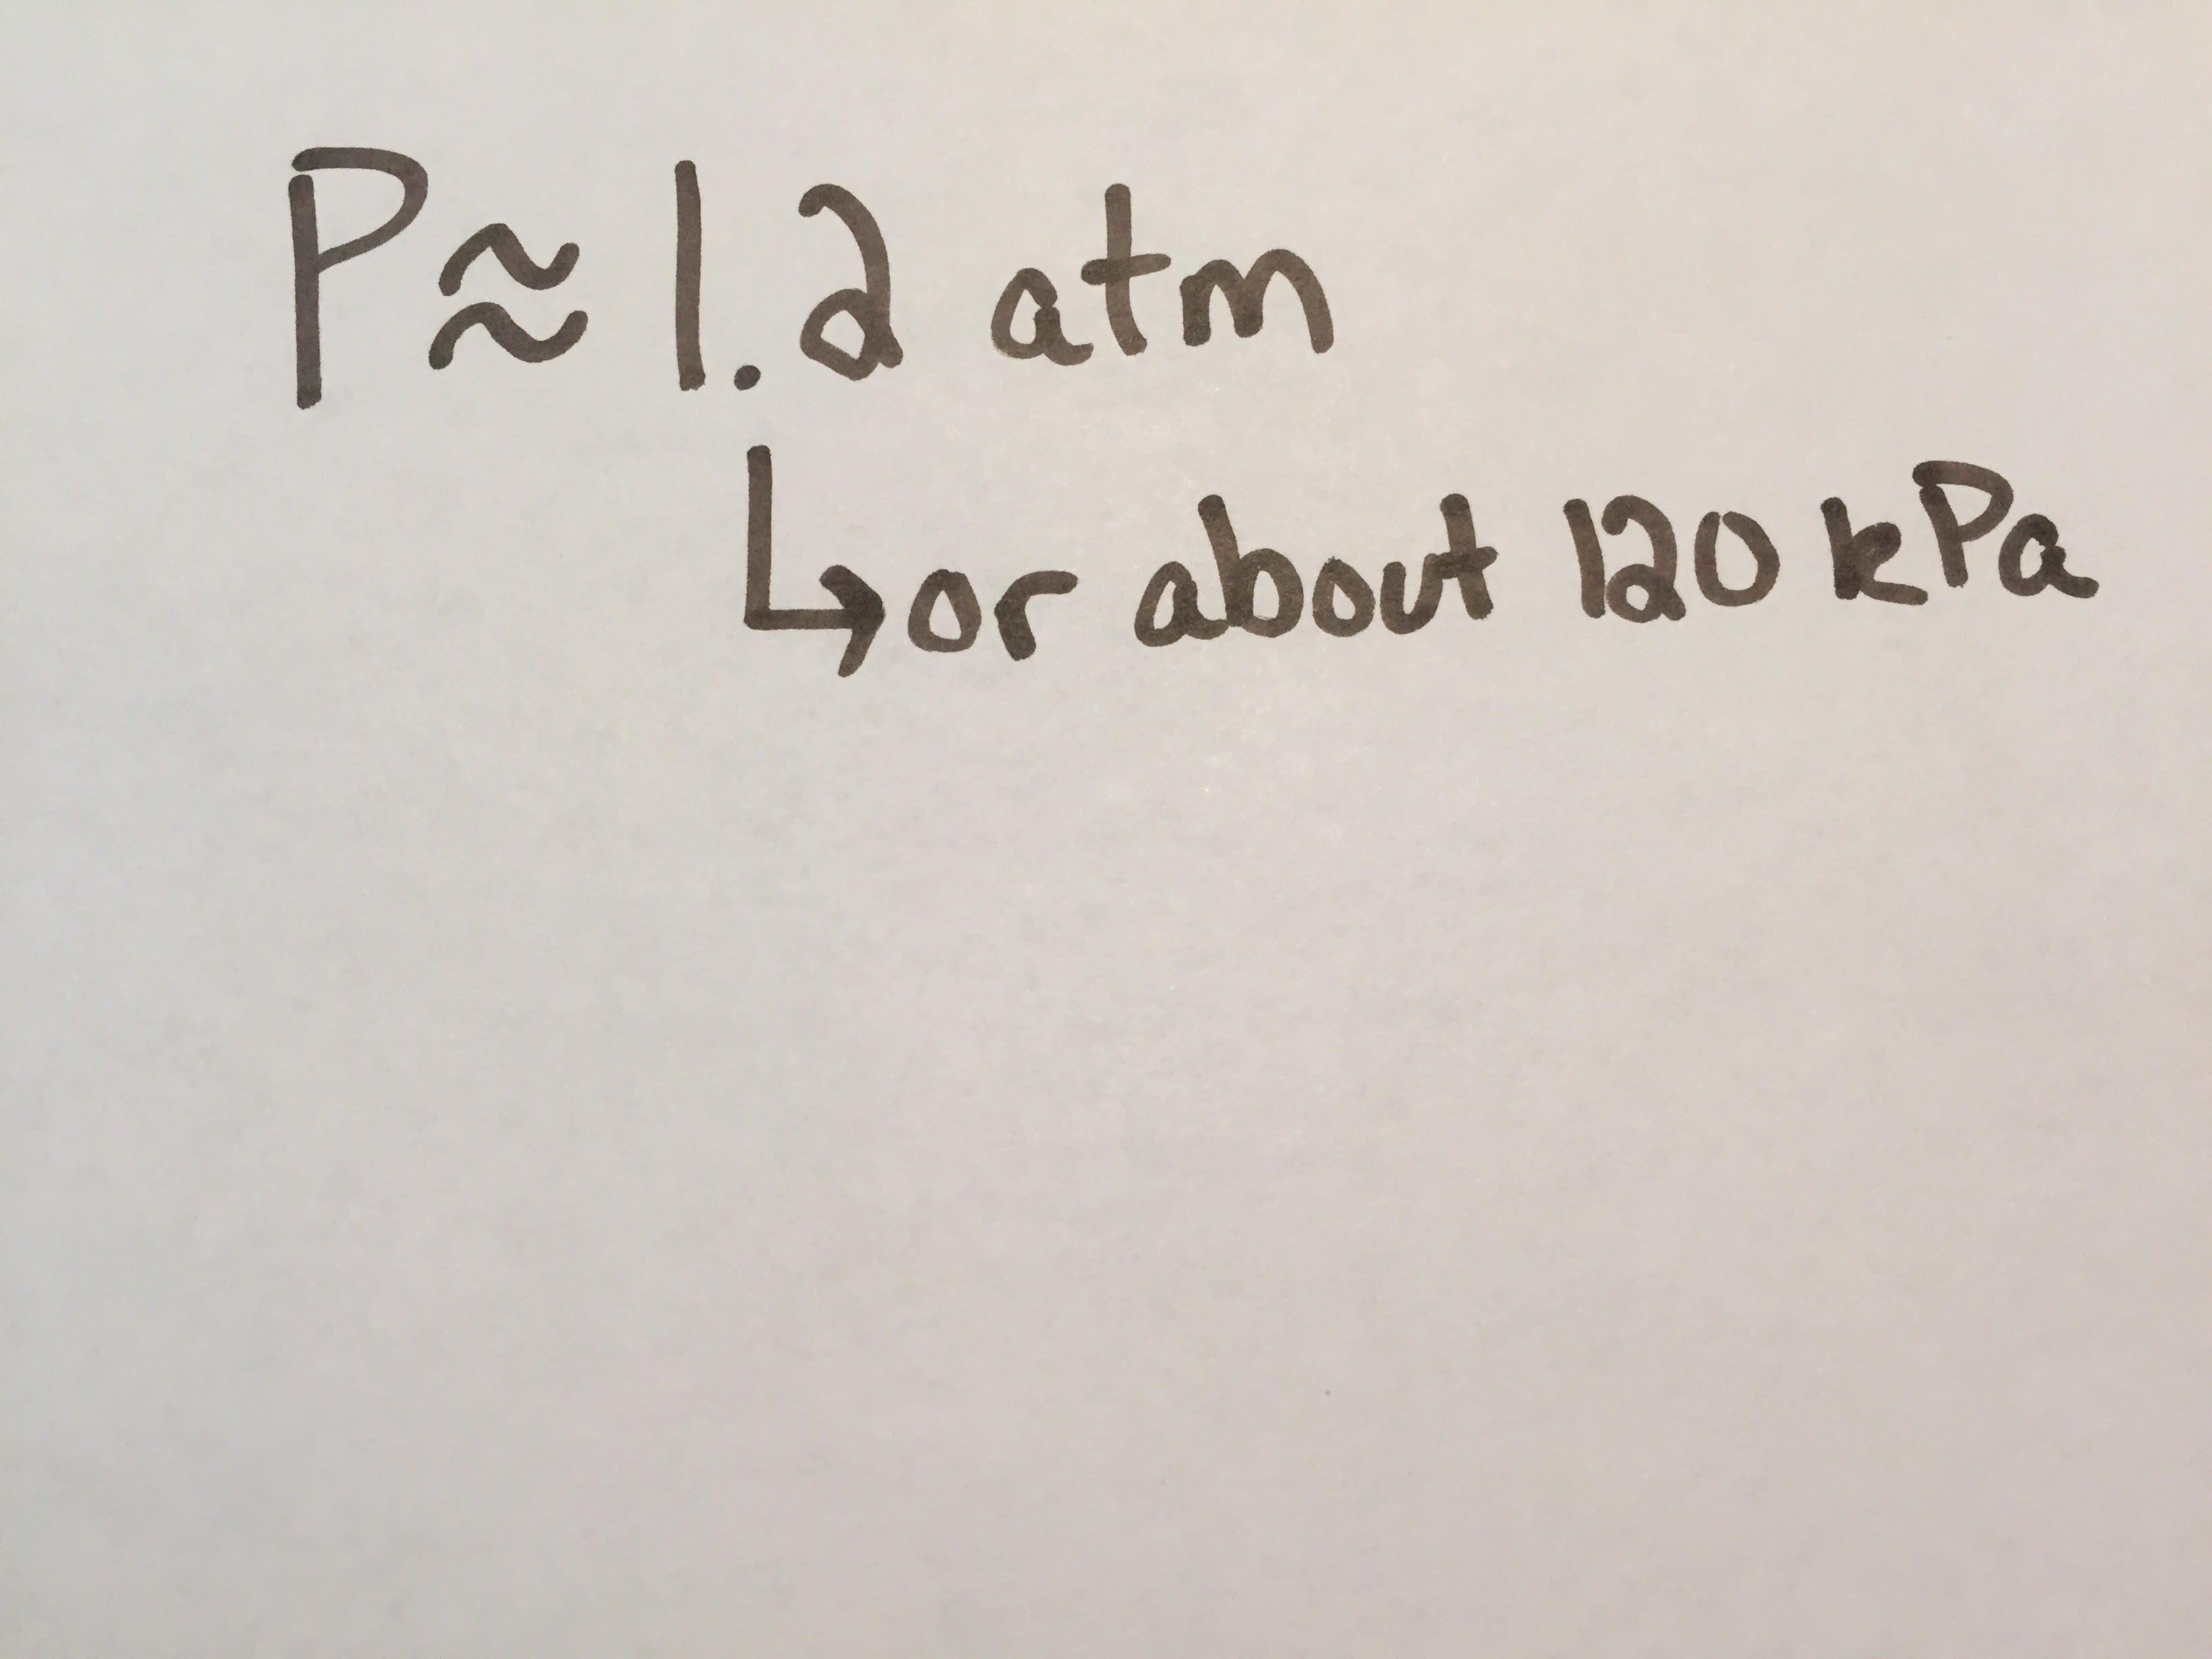 P ≈ 1.2 atm
↳ or about 120 kPa